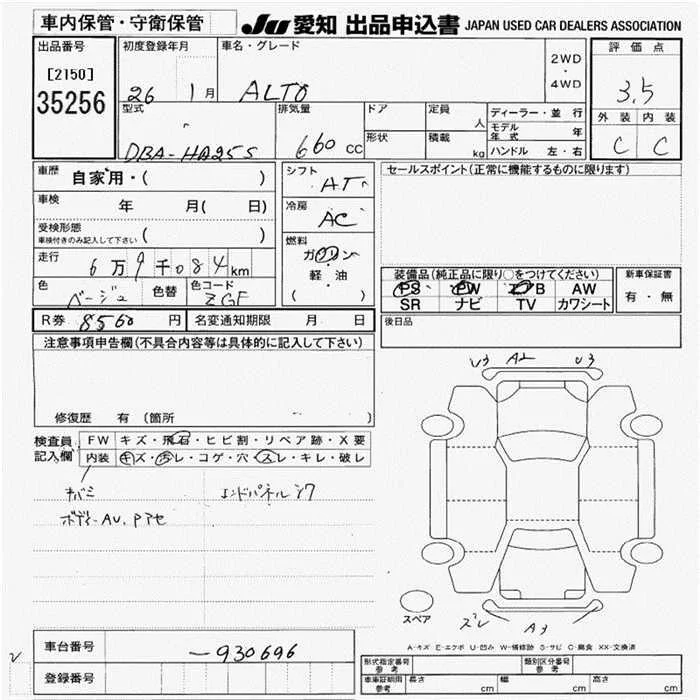 車内保管・守衛保管
JU 愛知 出品申込書 JAPAN USED CAR DEALERS ASSOCIATION
出品番号
[2150]
35256
初度登録年月
26 1月
車名・グレード
ALTO
2WD
・
4WD
評価点
3.5
外装 内装
C C
型式
DBA-HA25S
排気量
660 CC
ドア
形状
定員
人
積載
kg
ディーラー・並行
モデル年式 年
ハンドル 左・右
車歴 自家用・( )
車検 年 月( 日)
受検形態
車検付きのみ記入して下さい ( )
走行 6万9千084km
色 ベージュ 色替 色コード ZGF
シフト AT
冷房 AC
燃料
ガソリン
軽・油
( )
セールスポイント(正常に機能するものに限ります)
装備品(純正品に限り○をつけてください)
PS PW エアB AW
SR ナビ TV カワシート
新車保証書
有・無
R券 8560 円 名変通知期限 月 日
後日品
注意事項申告欄(不具合内容等は具体的に記入して下さい)
修復歴 有 (箇所 )
検査員記入欄
FW キズ・飛石・ヒビ割・リペア跡・X要
内装 キズ・汚レ・コゲ・穴・スレ・キレ・破レ
エンドパネル
ボディーAU.
U3 A2 U3
スペア
ズレ A3
A-キズ E-エクボ U-凹み W-補修跡 S-サビ C-腐食 XX-交換済
車台番号 -930696
登録番号
型式指定番号 参考
類別区分番号 参考
車庫証明用 参考
長さ cm 幅 cm 高さ cm